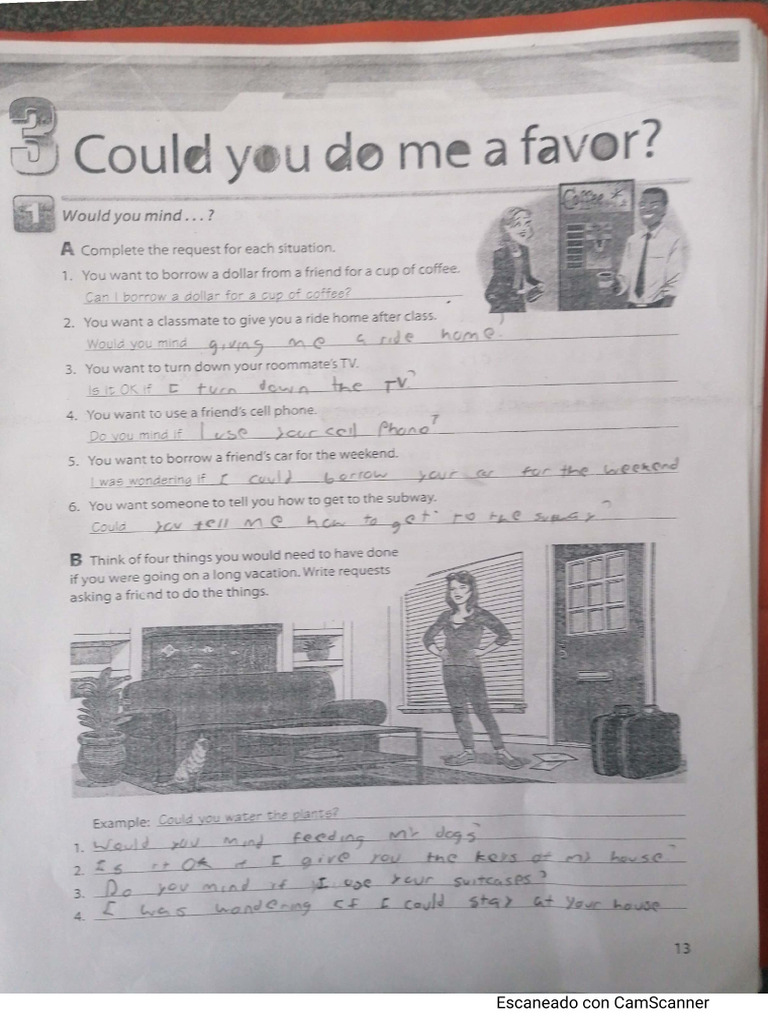 3 Could you do me a favor?
1 Would you mind...?
Coffee
A Complete the request for each situation.
1. You want to borrow a dollar from a friend for a cup of coffee.
Can I borrow a dollar for a cup of coffee?
2. You want a classmate to give you a ride home after class.
Would you mind giving me a ride home?
3. You want to turn down your roommate's TV.
Is it OK if I turn down the TV?
4. You want to use a friend's cell phone.
Do you mind if I use your cell phone?
5. You want to borrow a friend's car for the weekend.
I was wondering if I could borrow your car for the weekend
6. You want someone to tell you how to get to the subway.
Could you tell me how to get to the subway?
B Think of four things you would need to have done
if you were going on a long vacation. Write requests
asking a friend to do the things.
Example: Could you water the plants?
1. Would you mind feeding my dogs?
2. Is it OK if I give you the keys of my house?
3. Do you mind if I use your suitcases?
4. I was wondering if I could stay at your house
13
Escaneado con CamScanner